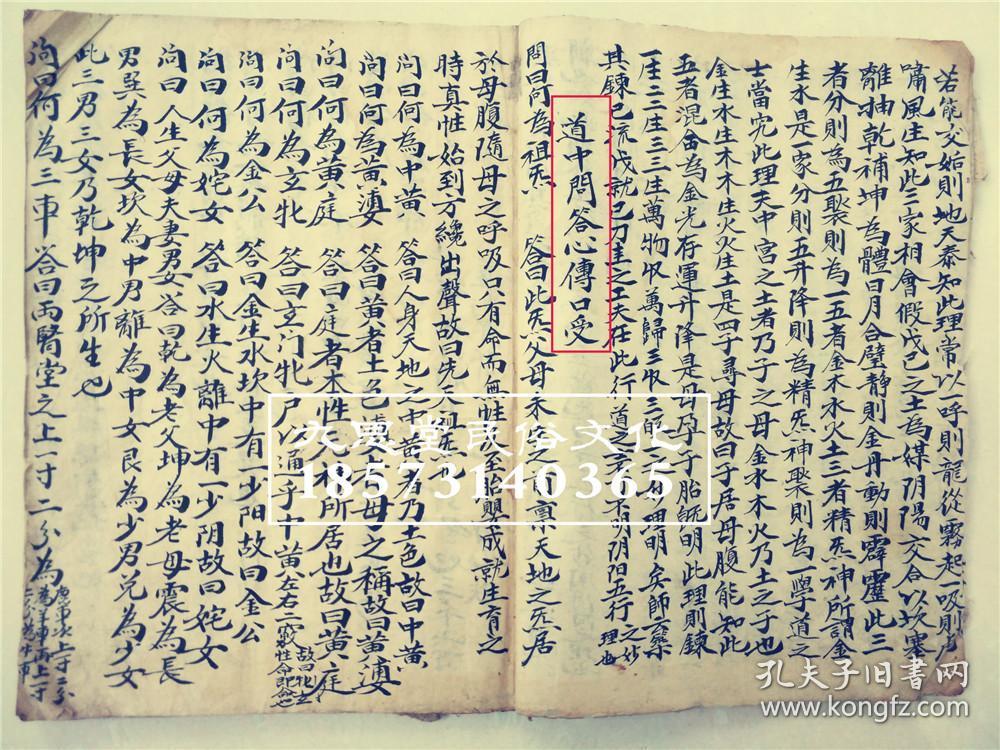 若能交姤則地天泰知此理常以一呼則龍從霧起一吸則虎
嘯風生知此二家相會假戊己之土為媒阴陽交合以坎塞
離抽乾補坤為體日月合璧静則金丹動則霹靂此三
者分則為五聚則為一五者金木水火土三者精炁神所謂金
生水是一家分則五升降則為精炁神聚則為一學道之
士當究此理夫中宮之土者乃子之母金水木火乃土之子也
金生水生木木生火火生土是四子尋母故曰子居母腹能知此
五者混合為金光存運升降是母孕子胎既明此理則鍊
一庄二二庄三三庄萬物収萬歸三収三歸一
理明矣師云藥
其鍊已流戊就已刀圭之土夫在此行道之方不明阴阳五行之妙
理也
道中問答心傳口受
問曰何為祖炁 答曰此炁父母未
之前禀天地之炁居
於母腹隨母之呼吸只有命而無性
至胎顛成就庄育之
時真性始到方纔出聲故曰先天祖
問曰何為中黃 答曰人身天地之中黃者乃土色故曰中黃
問曰何為黃婆 答曰黃者土色
母之稱故曰黃婆
問曰何為黃庭 答曰庭者本性元神所居也故曰黃庭
问曰何為玄牝 答曰玄门牝户以通乎中黄左右二竅
故曰玄牝
性命即
問曰何為金公 答曰金生水坎中有一少阳故曰金公
问曰何為姹女 答曰水生火離中有一少阴故曰姹女
问曰人生父母夫妻男女答曰乾為老父坤為老母震為長
男巽為長女坎為中男離為中女艮為少男兌為少女
此三男三女乃乾坤之所生也
问曰何為三車 答曰两腎堂之上一寸二分為
上寸二分
為羊車再上一寸
二分為牛車
九恩堂民俗文化
18573140365
孔夫子旧书网
www.kongfz.com